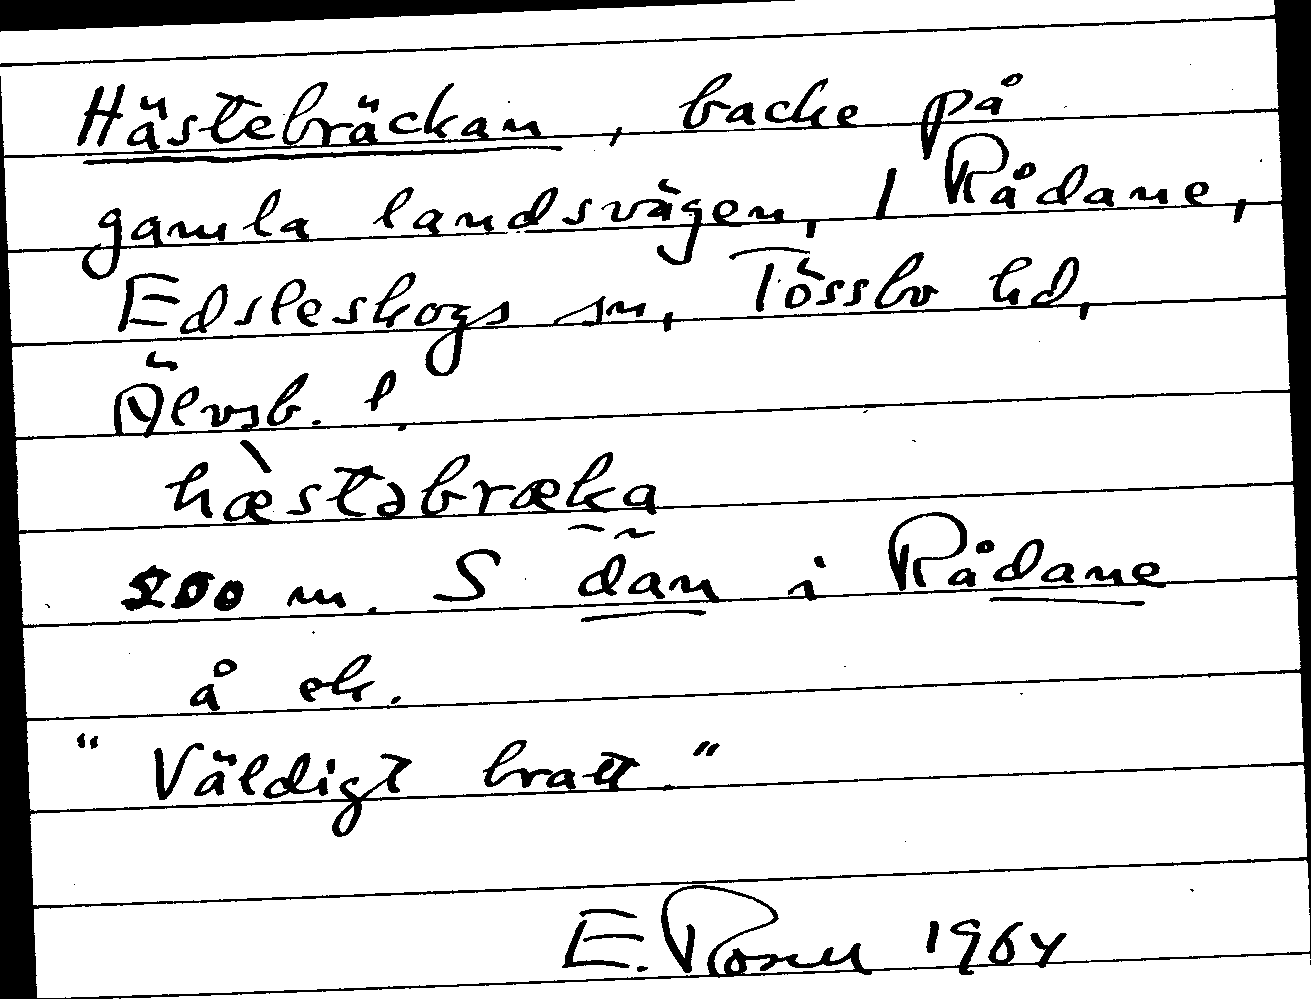 Hästebräckan, backe på
gamla landsvägen, 1 Rådane,
Edsleskogs sn, Tössbo hd,
Älvsb. l.
hæ̀stəbræka
200 m. S dan i Rådane
å ek.
"Väldigt bratt."
E. Rosell 1964